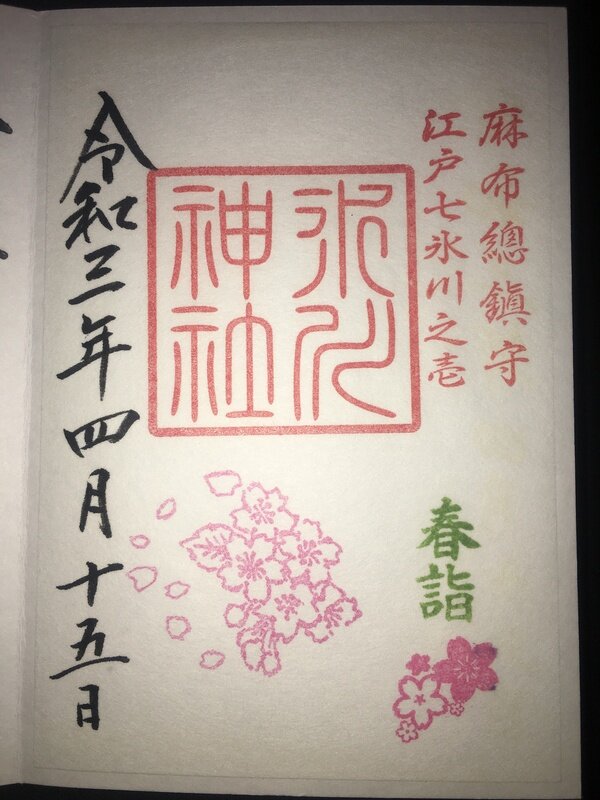 麻布總鎮守
江戸七氷川之壱
氷川
神社
春詣
令和三年四月十五日